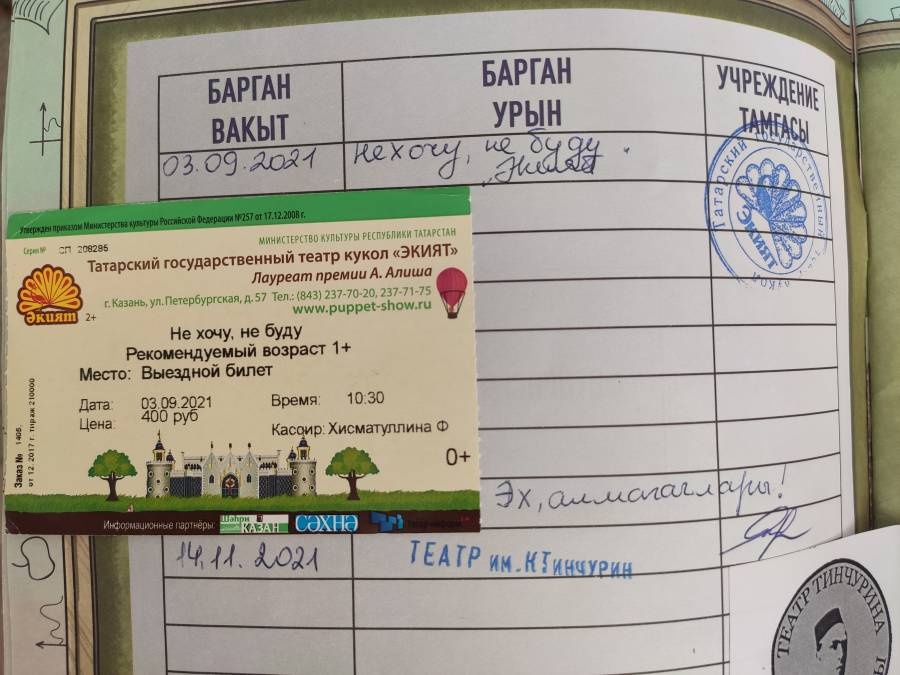 БАРГАН ВАКЫТ
БАРГАН УРЫН
УЧРЕЖДЕНИЕ ТАМГАСЫ
03.09.2021
не хочу, не буду
"Экият"
Татарский государственный
ЭКИЯТ
Утвержден приказом Министерства культуры Российской Федерации №257 от 17.12.2008 г.
Серия № СП 209285
МИНИСТЕРСТВО КУЛЬТУРЫ РЕСПУБЛИКИ ТАТАРСТАН
Татарский государственный театр кукол «ЭКИЯТ»
Лауреат премии А. Алиша
г. Казань, ул. Петербургская, д. 57 Тел.: (843) 237-70-20, 237-71-75
www.puppet-show.ru
Әкият
2+
Не хочу, не буду
Рекомендуемый возраст 1+
Место: Выездной билет
Дата: 03.09.2021 Время: 10:30
Цена: 400 руб
Кассир: Хисматуллина Ф
0+
Заказ № 1405
от 12.2017 г. тираж 210000
Информационные партнёры: Шәһри КАЗАН СӘХНӘ Татар-информ
Эх, алмагачлары!
14.11.2021
ТЕАТР им. К Тинчурин
ТЕАТР ТИНЧУРИНА